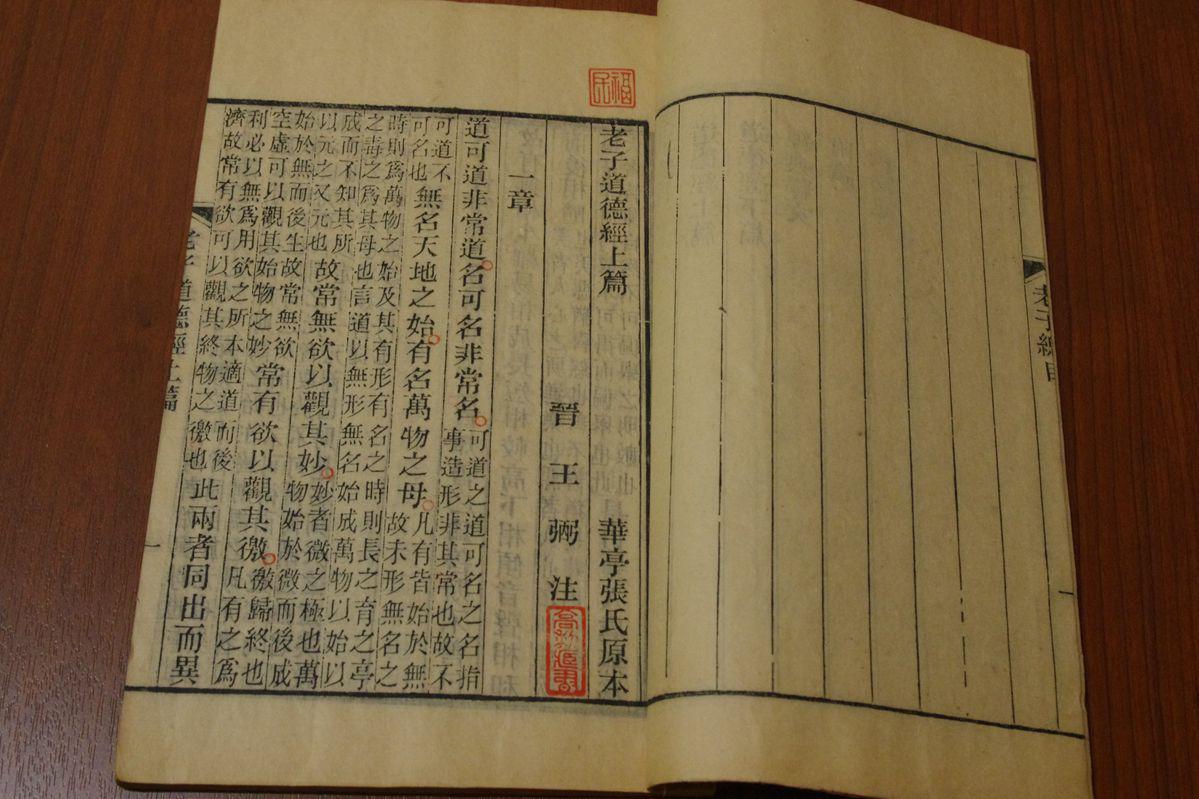 老子總目
一
福民
老子道德經上篇 華亭張氏原本
晉 王 弼 注
一章
道可道非常道名可名非常名可道之道可名之名指事造形非其常也故不
可道不可名也無名天地之始有名萬物之母凡有皆始於無故未形無名之
時則爲萬物之始及其有形有名之時則長之育之亭之毒之爲其母也言道以無形無名始成萬物以始以
成而不知其所以元之又元也故常無欲以觀其妙妙者微之極也萬物始於微而後成
始於無而後生故常無欲空虛可以觀其始物之妙常有欲以觀其徼徼歸終也凡有之爲
利必以無爲用欲之所本適道而後濟故常有欲可以觀其終物之徼也此兩者同出而異
老子道德經上篇
一